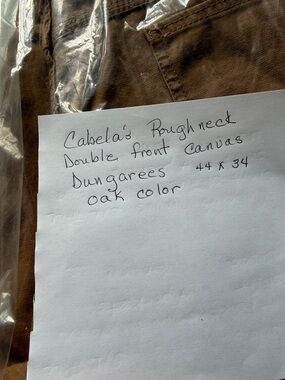 Cabela's Roughneck
Double front Canvas
Dungarees 44 x 34
oak color